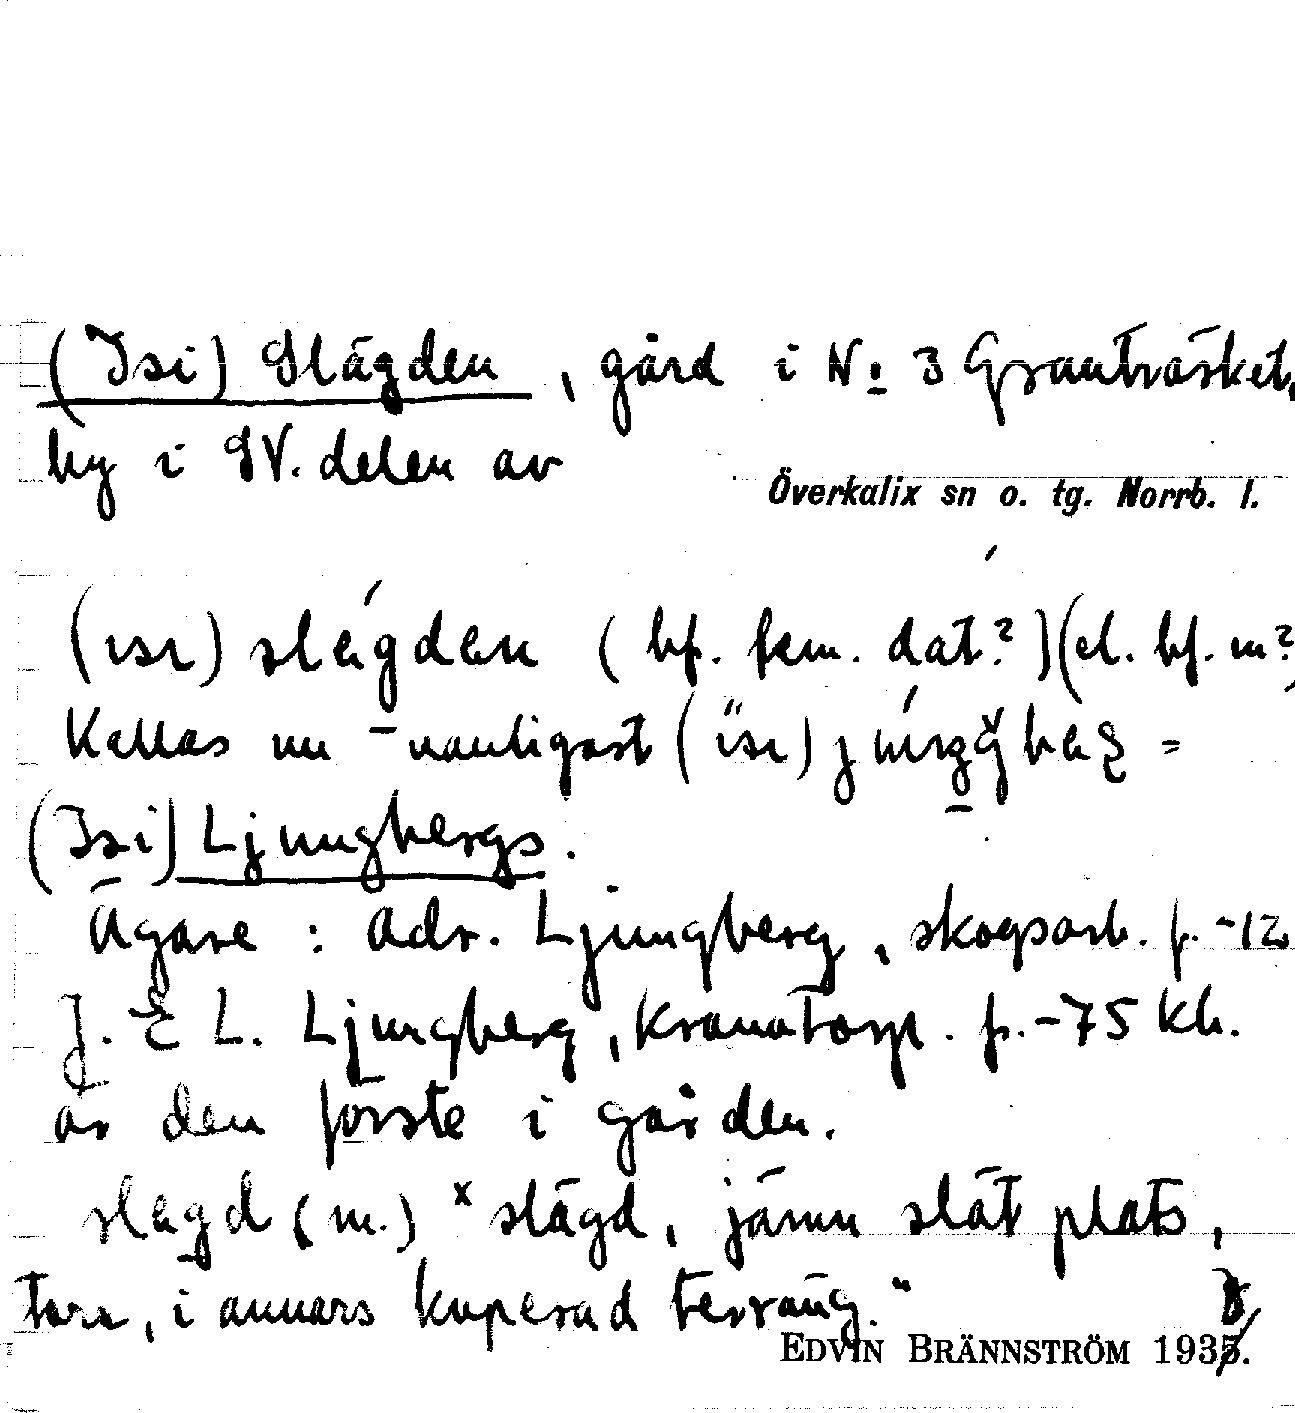 (Isi) Slägden, gård i No 3 Granträsket,
by i SV. delen av
Överkalix sn o. tg. Norrb. l.
(ısı) slegden (bf. fem. dat?) (el. bf. m?)
Kallas nu vanligast (ïsı)
(Isi) Ljungbergs.
Ägare: Adr. Ljungberg, skogsarb. f. -12
J. E L. Ljungberg, kronotorp. f. -75 Kh.
är den förste i gården.
slegd (m.) "slägd, jämn slät plats,
torr, i annars kuperad terräng."
EDVIN BRÄNNSTRÖM 193